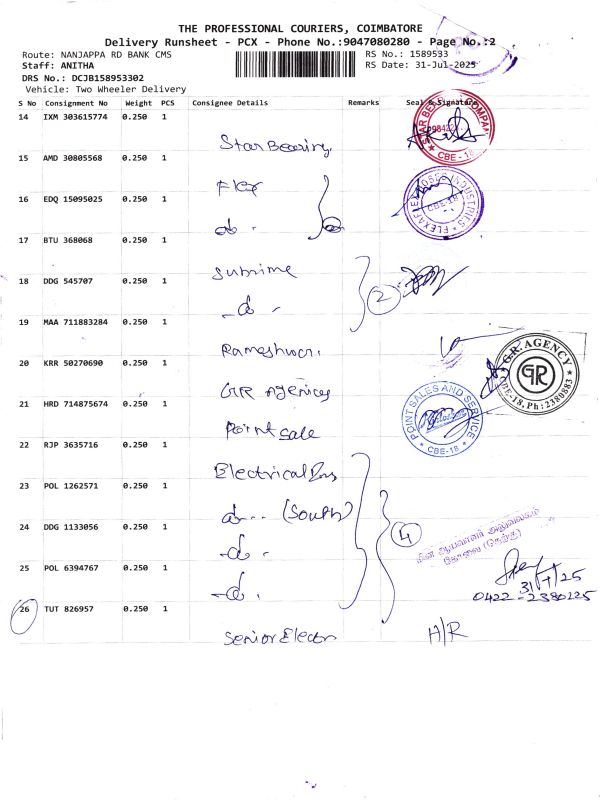 THE PROFESSIONAL COURIERS, COIMBATORE
Delivery Runsheet - PCX - Phone No.:9047080280 - Page No.:2
Route: NANJAPPA RD BANK CMS
RS No.: 1589533
Staff: ANITHA
RS Date: 31-Jul-2025
DRS No.: DCJB158953302
Vehicle: Two Wheeler Delivery
S No Consignment No Weight PCS Consignee Details Remarks Seal & Signature
14 IXM 303615774 0.250 1
Star Bearing
STAR BEARING COMPANY
98422
★ CBE - 18 ★
15 AMD 30805568 0.250 1
Flex
16 EDQ 15095025 0.250 1
do .
INDUSTRIES
CBE-18
17 BTU 368068 0.250 1
Sunrime
18 DDG 545707 0.250 1
do .
2
19 MAA 711883284 0.250 1
Rameshwar.
20 KRR 50270690 0.250 1
GR Agencies
G.R. AGENCY
GR
CBE-18. Ph: 2380883
21 HRD 714875674 0.250 1
Point sale
POINT SALES AND SERVICE
★ CBE-18 ★
22 RJP 3635716 0.250 1
Electrical Ins
23 POL 1262571 0.250 1
do.. (South)
4
மின் ஆய்வாளர் அலுவலகம்
கோவை (தெற்கு)
24 DDG 1133056 0.250 1
do .
25 POL 6394767 0.250 1
do .
31/7/25
0422-2380125
26 TUT 826957 0.250 1
Senior Electr
A/R